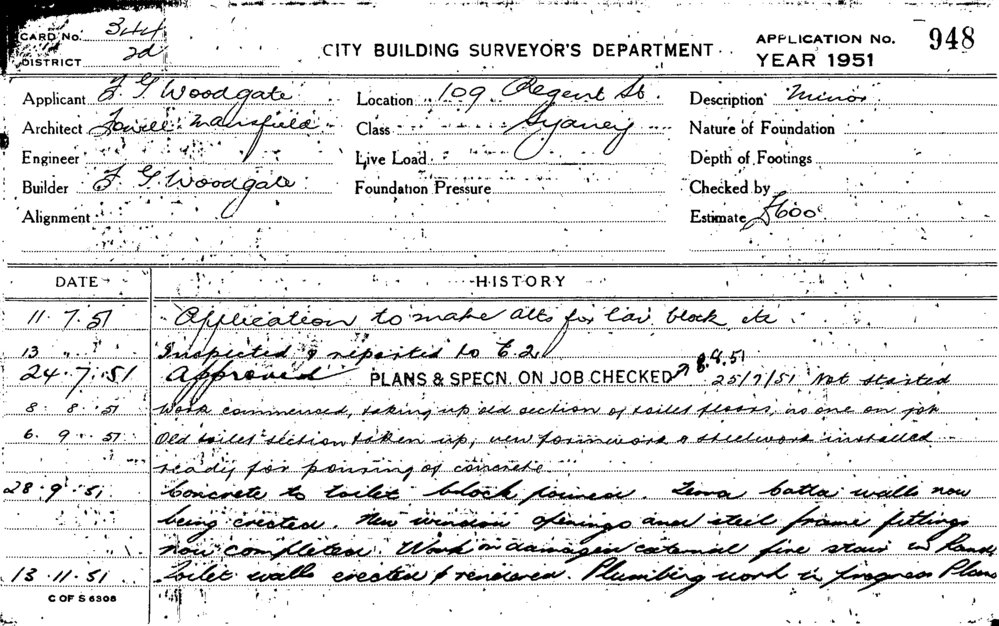 CARD No. 344
DISTRICT 2d
CITY BUILDING SURVEYOR'S DEPARTMENT
APPLICATION No. 948
YEAR 1951
Applicant F G Woodgate Location 109 Regent St. Description Minor
Architect Mansfield Class Sydney Nature of Foundation
Engineer Live Load Depth of Footings
Builder F G Woodgate Foundation Pressure Checked by
Alignment Estimate £600
DATE HISTORY
11.7.51 Application to make alts for lav. block etc
13 " " Inspected & reported to C.2
24.7.51 Approved PLANS & SPECN. ON JOB CHECKED 8.8.51 25/7/51 Not started
8.8.51 Work commenced, taking up old section of toilet floors, no one on job
6.9.51 Old toilet section taken up, new formwork & steelwork installed
ready for pouring of concrete.
28.9.51 Concrete to toilet block poured. Terra Cotta walls now
being erected. New window openings and steel frame fittings
now completed. Work on damaged external fire stair in hand.
13.11.51 Toilet walls erected & rendered. Plumbing work in progress Plans
C OF S 6308